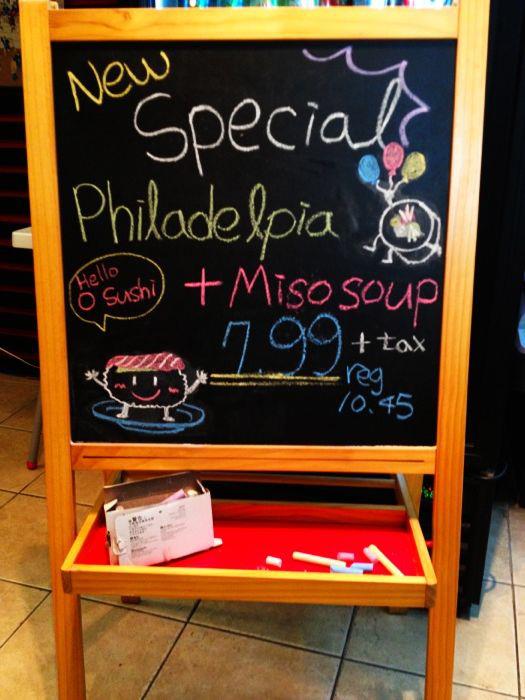 New
Special
Philadelpia
Hello
O Sushi
+ Miso soup
7.99 + tax
reg
10.45